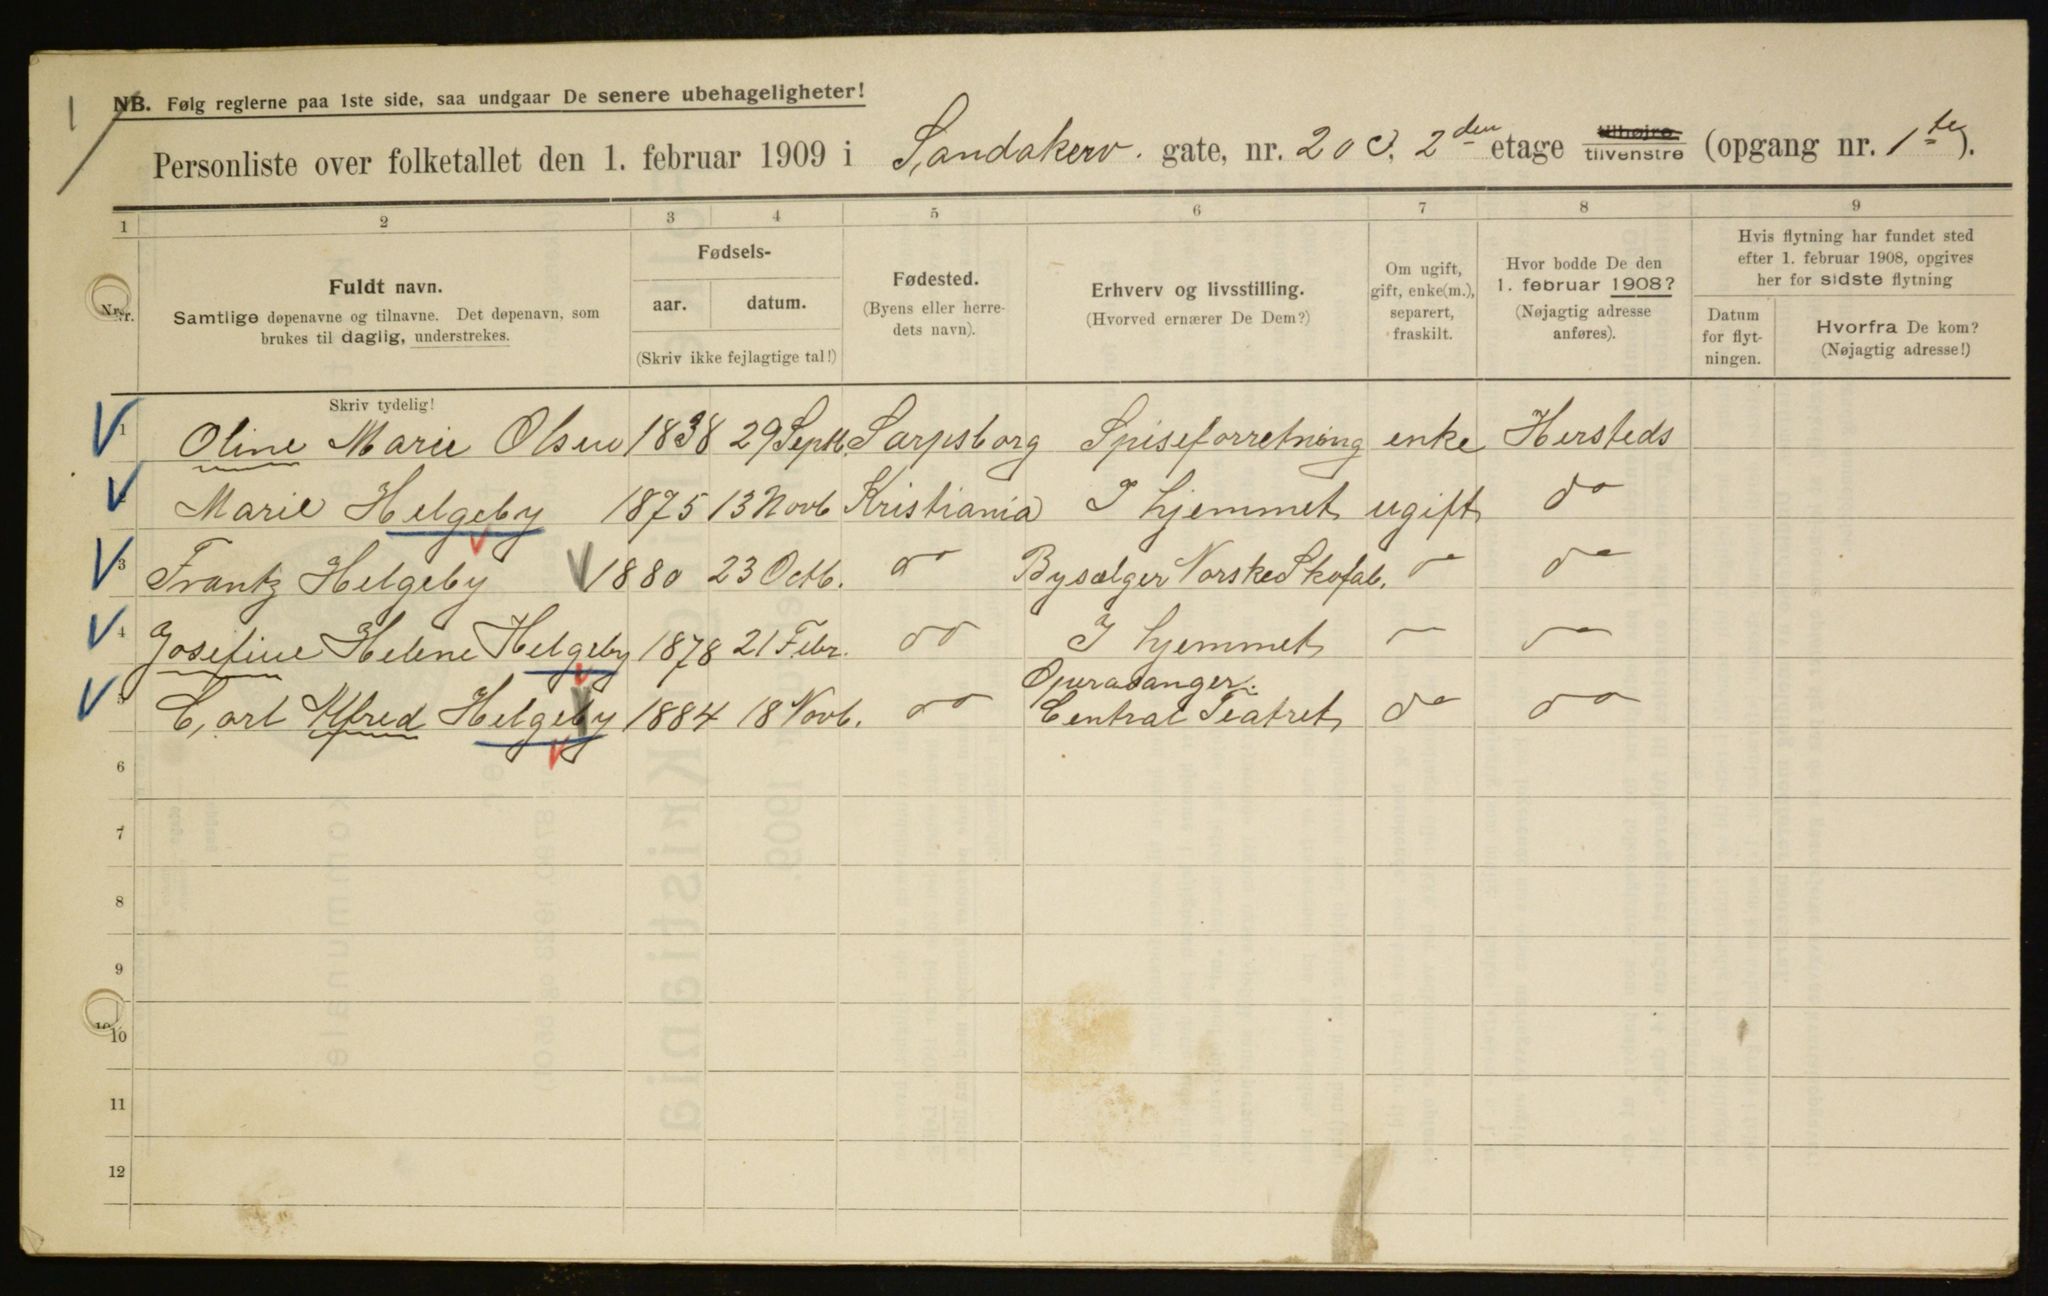 NB. Følg reglerne paa 1ste side, saa undgaar De senere ubehageligheter!
Personliste over folketallet den 1. februar 1909 i Sandakerv. gate, nr. 20 C, 2den etage tilhøjre tilvenstre (opgang nr. 1te).
1 2 3 4 5 6 7 8 9
Nr.
Fuldt navn.
Samtlige døpenavne og tilnavne. Det døpenavn, som
brukes til daglig, understrekes.
Skriv tydelig!
Fødsels-
aar. datum.
(Skriv ikke fejlagtige tal!)
Fødested.
(Byens eller herre-
dets navn).
Erhverv og livsstilling.
(Hvorved ernærer De Dem?)
Om ugift,
gift, enke(m.),
separert,
fraskilt.
Hvor bodde De den
1. februar 1908?
(Nøjagtig adresse
anføres).
Hvis flytning har fundet sted
efter 1. februar 1908, opgives
her for sidste flytning
Datum
for flyt-
ningen.
Hvorfra De kom?
(Nøjagtig adresse!)
1 Oline Marie Olsen 1838 29 Septb. Sarpsborg Spiseforretning enke Hersteds
2 Marie Helgeby 1875 13 Novb Kristiania I hjemmet ugift do
3 Frantz Helgeby 1880 23 Octb. do Bysælger Norske Skofab. do do
4 Josefine Helene Helgeby 1878 21 Febr. do I hjemmet do
Operasanger.
5 Carl Alfred Helgeby 1884 18 Novb. do Central Teatret do do
6
7
8
9
10
11
12